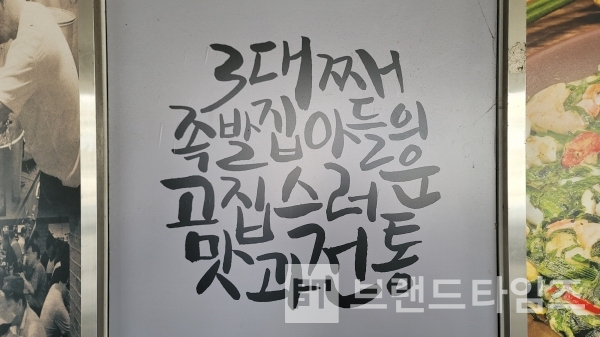 3대째
족발집아들의
고집스러운
맛과전통
BT 브랜드타임즈